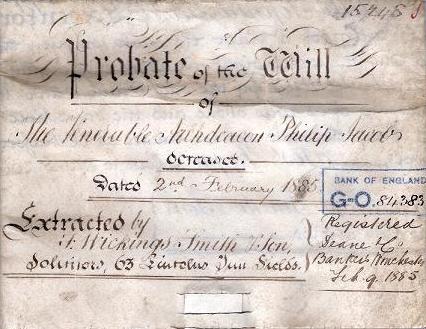 15245
Probate of the Will
of
The Venerable Archdeacon Philip Jacob
deceased.
Dated 2nd February 1885
BANK OF ENGLAND
G-O. 84383
Extracted by
Wickings Smith & Son,
Solicitors, 63 Lincolns Inn Fields.
Registered
Deane & Co
Bankers Winchester
Feb. 9. 1885